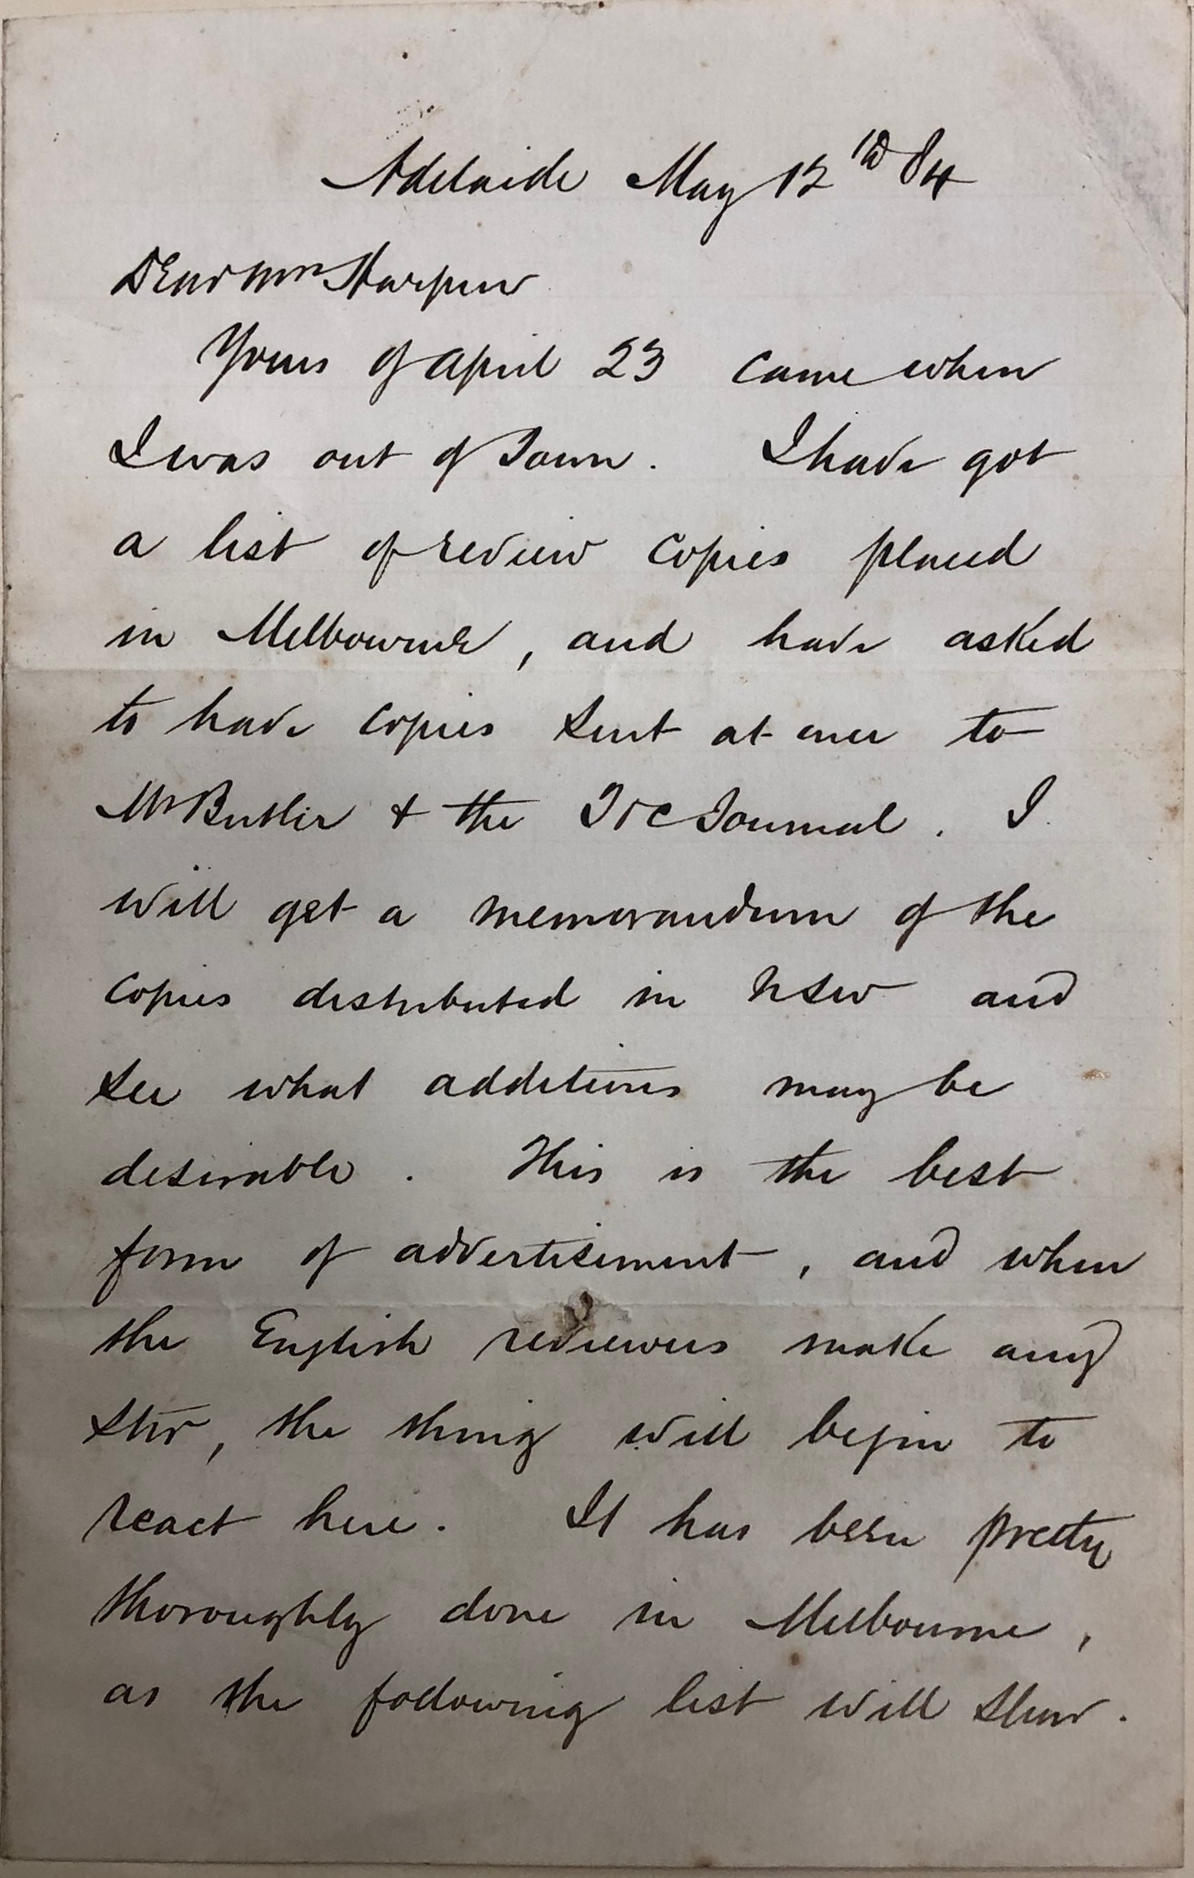 Adelaide May 12th 84
Dear Mrs Harpur
Yours of April 23 came when
I was out of Town. I have got
a list of review copies placed
in Melbourne, and have asked
to have copies sent at once to
Mr Butler & the T & C Journal. I
will get a memorandum of the
copies distributed in NSW and
see what additions may be
desirable. This is the best
form of advertisement, and when
the English reviewers make any
stir, the thing will begin to
react here. It has been pretty
thoroughly done in Melbourne,
as the following list will show.